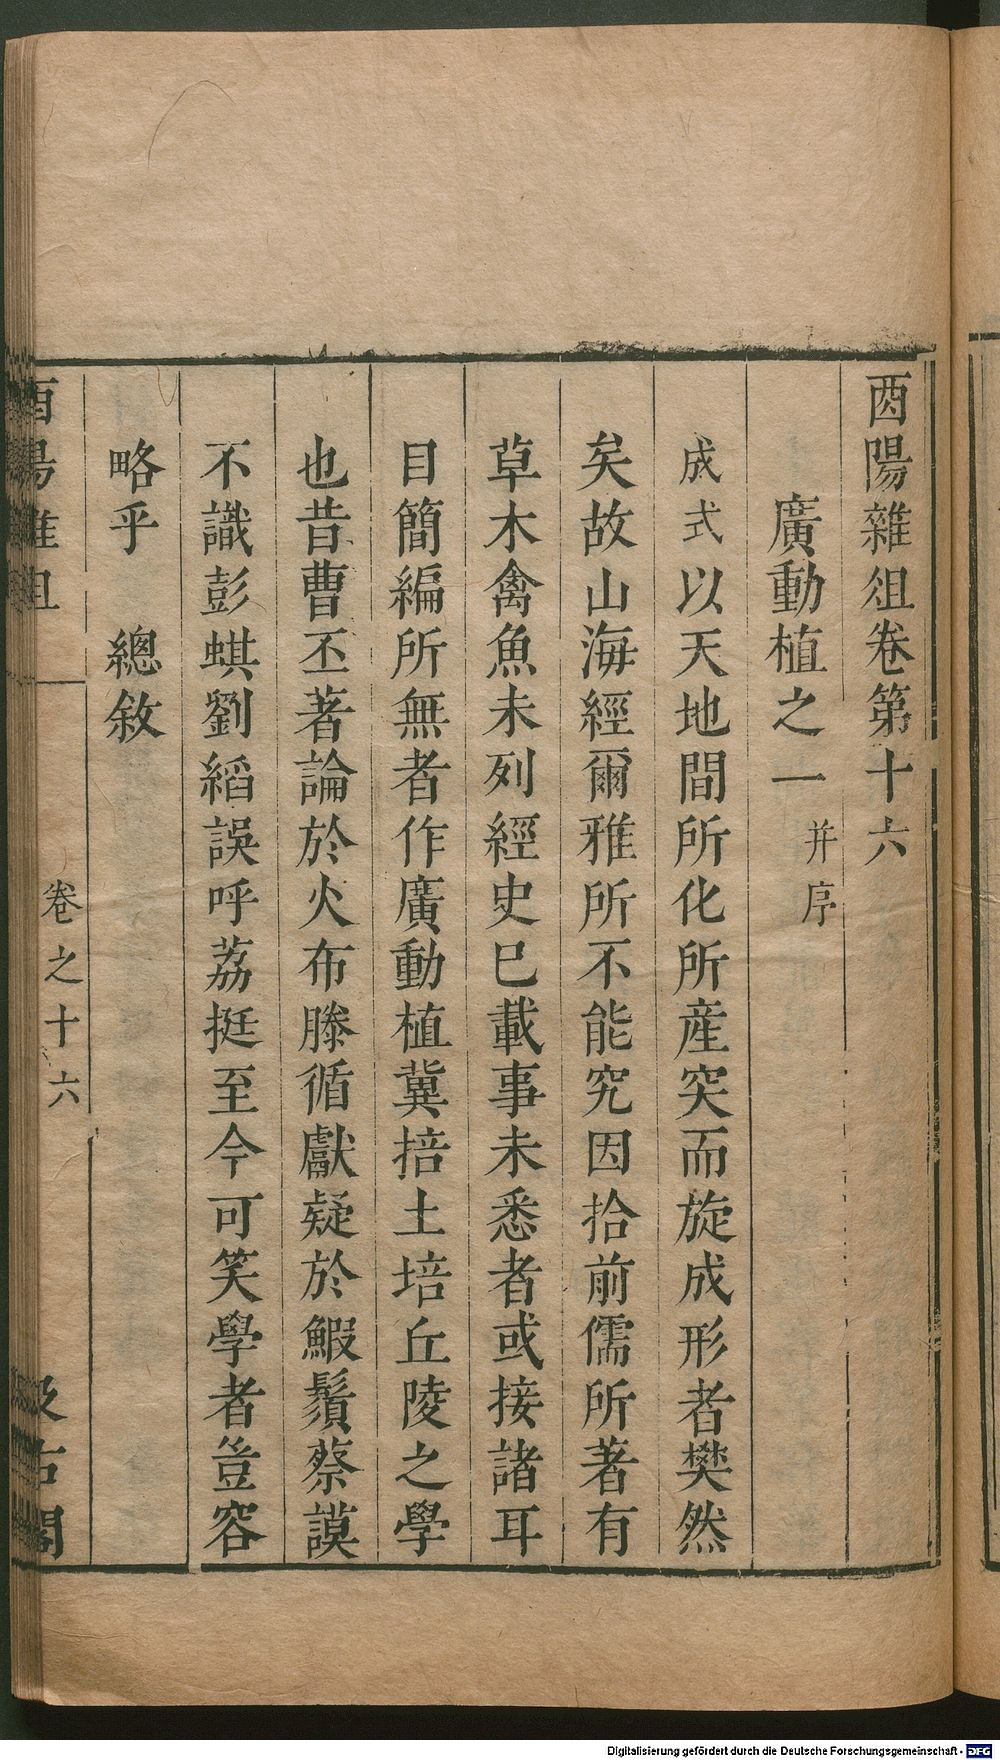 酉陽雜俎卷第十六
廣動植之一 并序
成式以天地間所化所產突而旋成形者樊然
矣故山海經爾雅所不能究因拾前儒所著有
草木禽魚未列經史巳載事未悉者或接諸耳
目簡編所無者作廣動植冀掊土培丘陵之學
也昔曹丕著論於火布滕循獻疑於鰕鬚蔡謨
不識彭蜞劉縚誤呼荔挺至今可笑學者豈容
略乎 總敘
酉陽雜俎
卷之十六
汲古閣
Digitalisierung gefördert durch die Deutsche Forschungsgemeinschaft - DFG